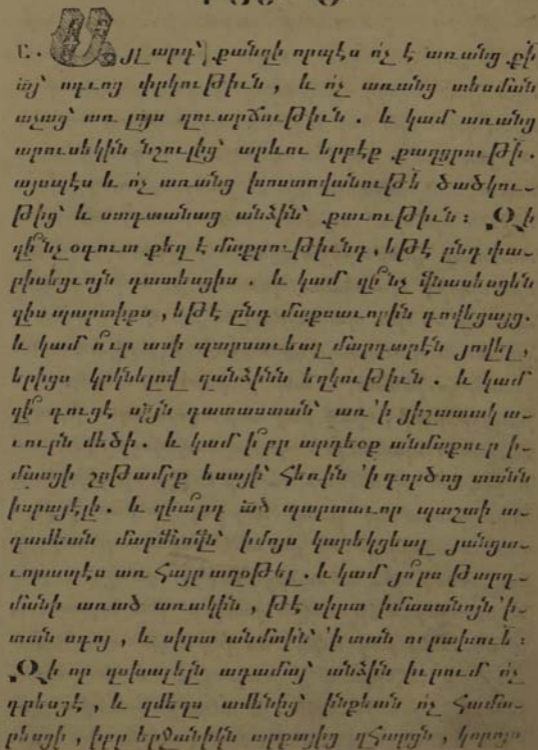 Բ. Այլ արդ՝ քանզի որպէս ոչ է առանց քի
այ՝ ոգւոց փրկութիւն, և ոչ առանց տեսման
աչաց՝ առ լոյս զուարճութիւն. և կամ առանց
արուսեկին նշուլից՝ արևու երբէք քաղցրութի.
այսպէս և ոչ առանց խոստովանութե ծածկու-
թից՝ և ստգտանաց անձին՝ քաւութիւն։ Զի
զի՞նչ օգուտ քեզ է մաքրութիւնդ, եթէ ընդ փա-
րիսեցւոյն դատեսցիս. և կամ զի՞նչ վնասեսցեն
զիս պարտիքս, եթէ ընդ մաքսաւորին գովեցայց.
և կամ ո՞ւր ասի պարսաւեալ մարգարէն յովէլ,
երիցս կրկնելով զանձինն եղկութիւն. և կամ
զի՞ գուցէ սյն դատաստան՝ առ ՚ի յիշատակ ա-
ւուրն մեծի. և կամ ի՞բր արդեօք անմաքուր ի-
մասցի շրթամբք եսայի՝ հեռին ՚ի գործոց տանն
իսրայէլի. և զիա՞րդ ած պարտաւոր պաշտի ա-
դամեան մարմնովն՝ իմոյս կարեկցեալ յանցա-
ւորապէս առ հայր աղօթել. և կամ յո՞րս թարգ-
մանի առած առակին, թէ սիրտ իմաստնոյն ՚ի-
տան սգոյ, և սիրտ անմտին՝ ՚ի տան ուրախուե։
Զի որ զսխալելն ադամայ՝ անձին իւրում ոչ
գրեսցէ, և զմեղս ամենից՝ ինքեան ոչ համա-
րեսցի, իբր երջանիկն արքայից զհարցն, կորոյս